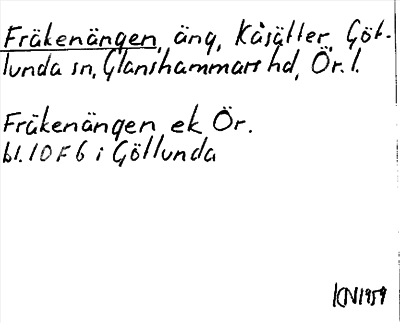 Fräkenängen, äng, Kåsätter, Göt-
lunda sn, Glanshammars hd, Ör. l.
Fräkenängen ek Ör.
bl. 10 F 6 i Götlunda
KN 1959